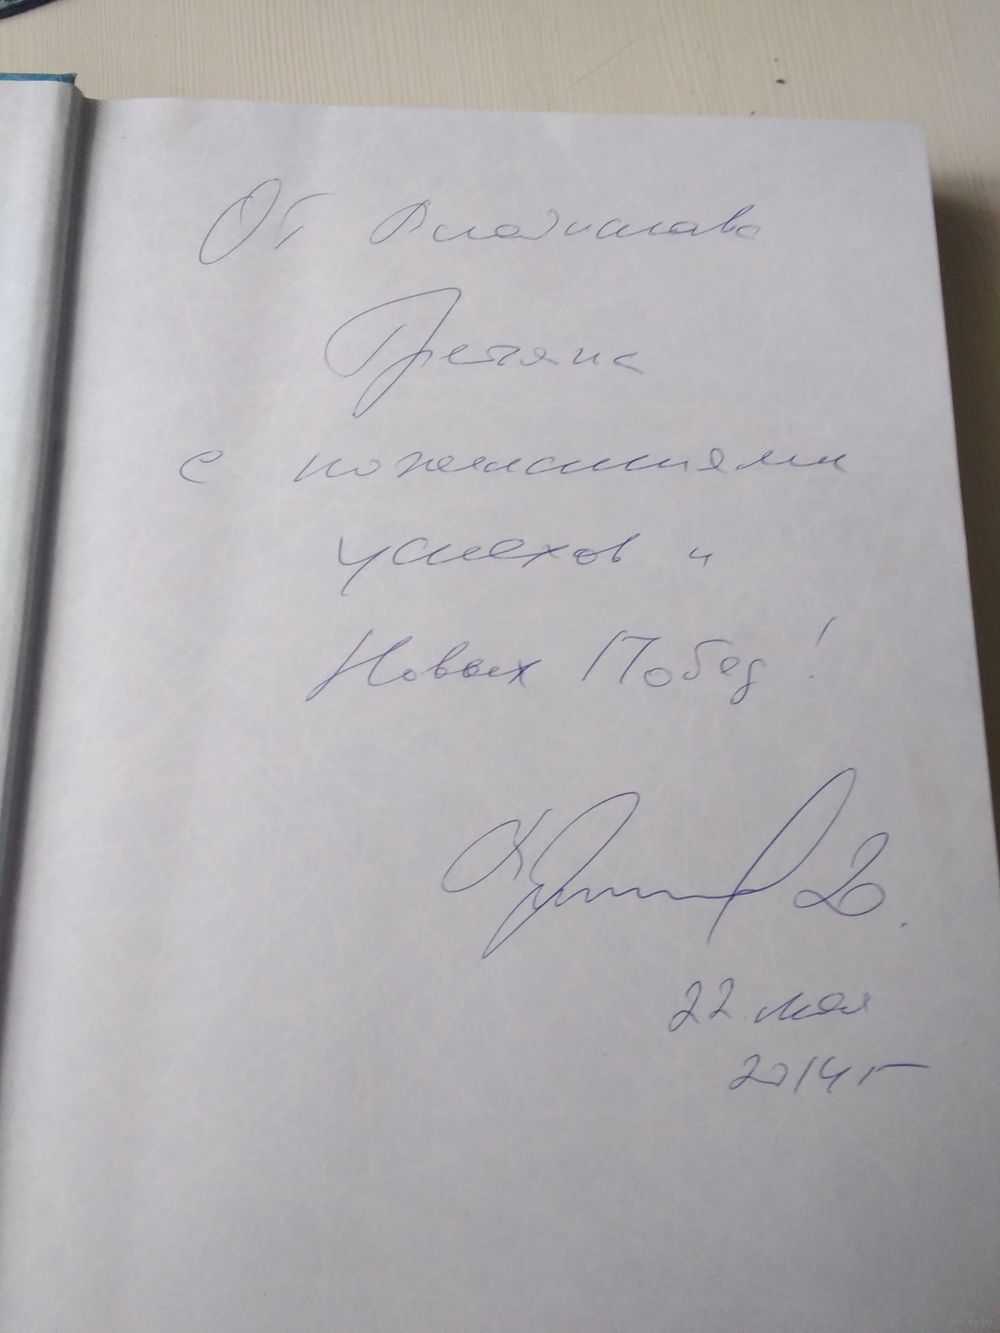 От Владислава
Третьяка
с пожеланиями
успехов и
Новых Побед!
20.
22 мая
2014 г